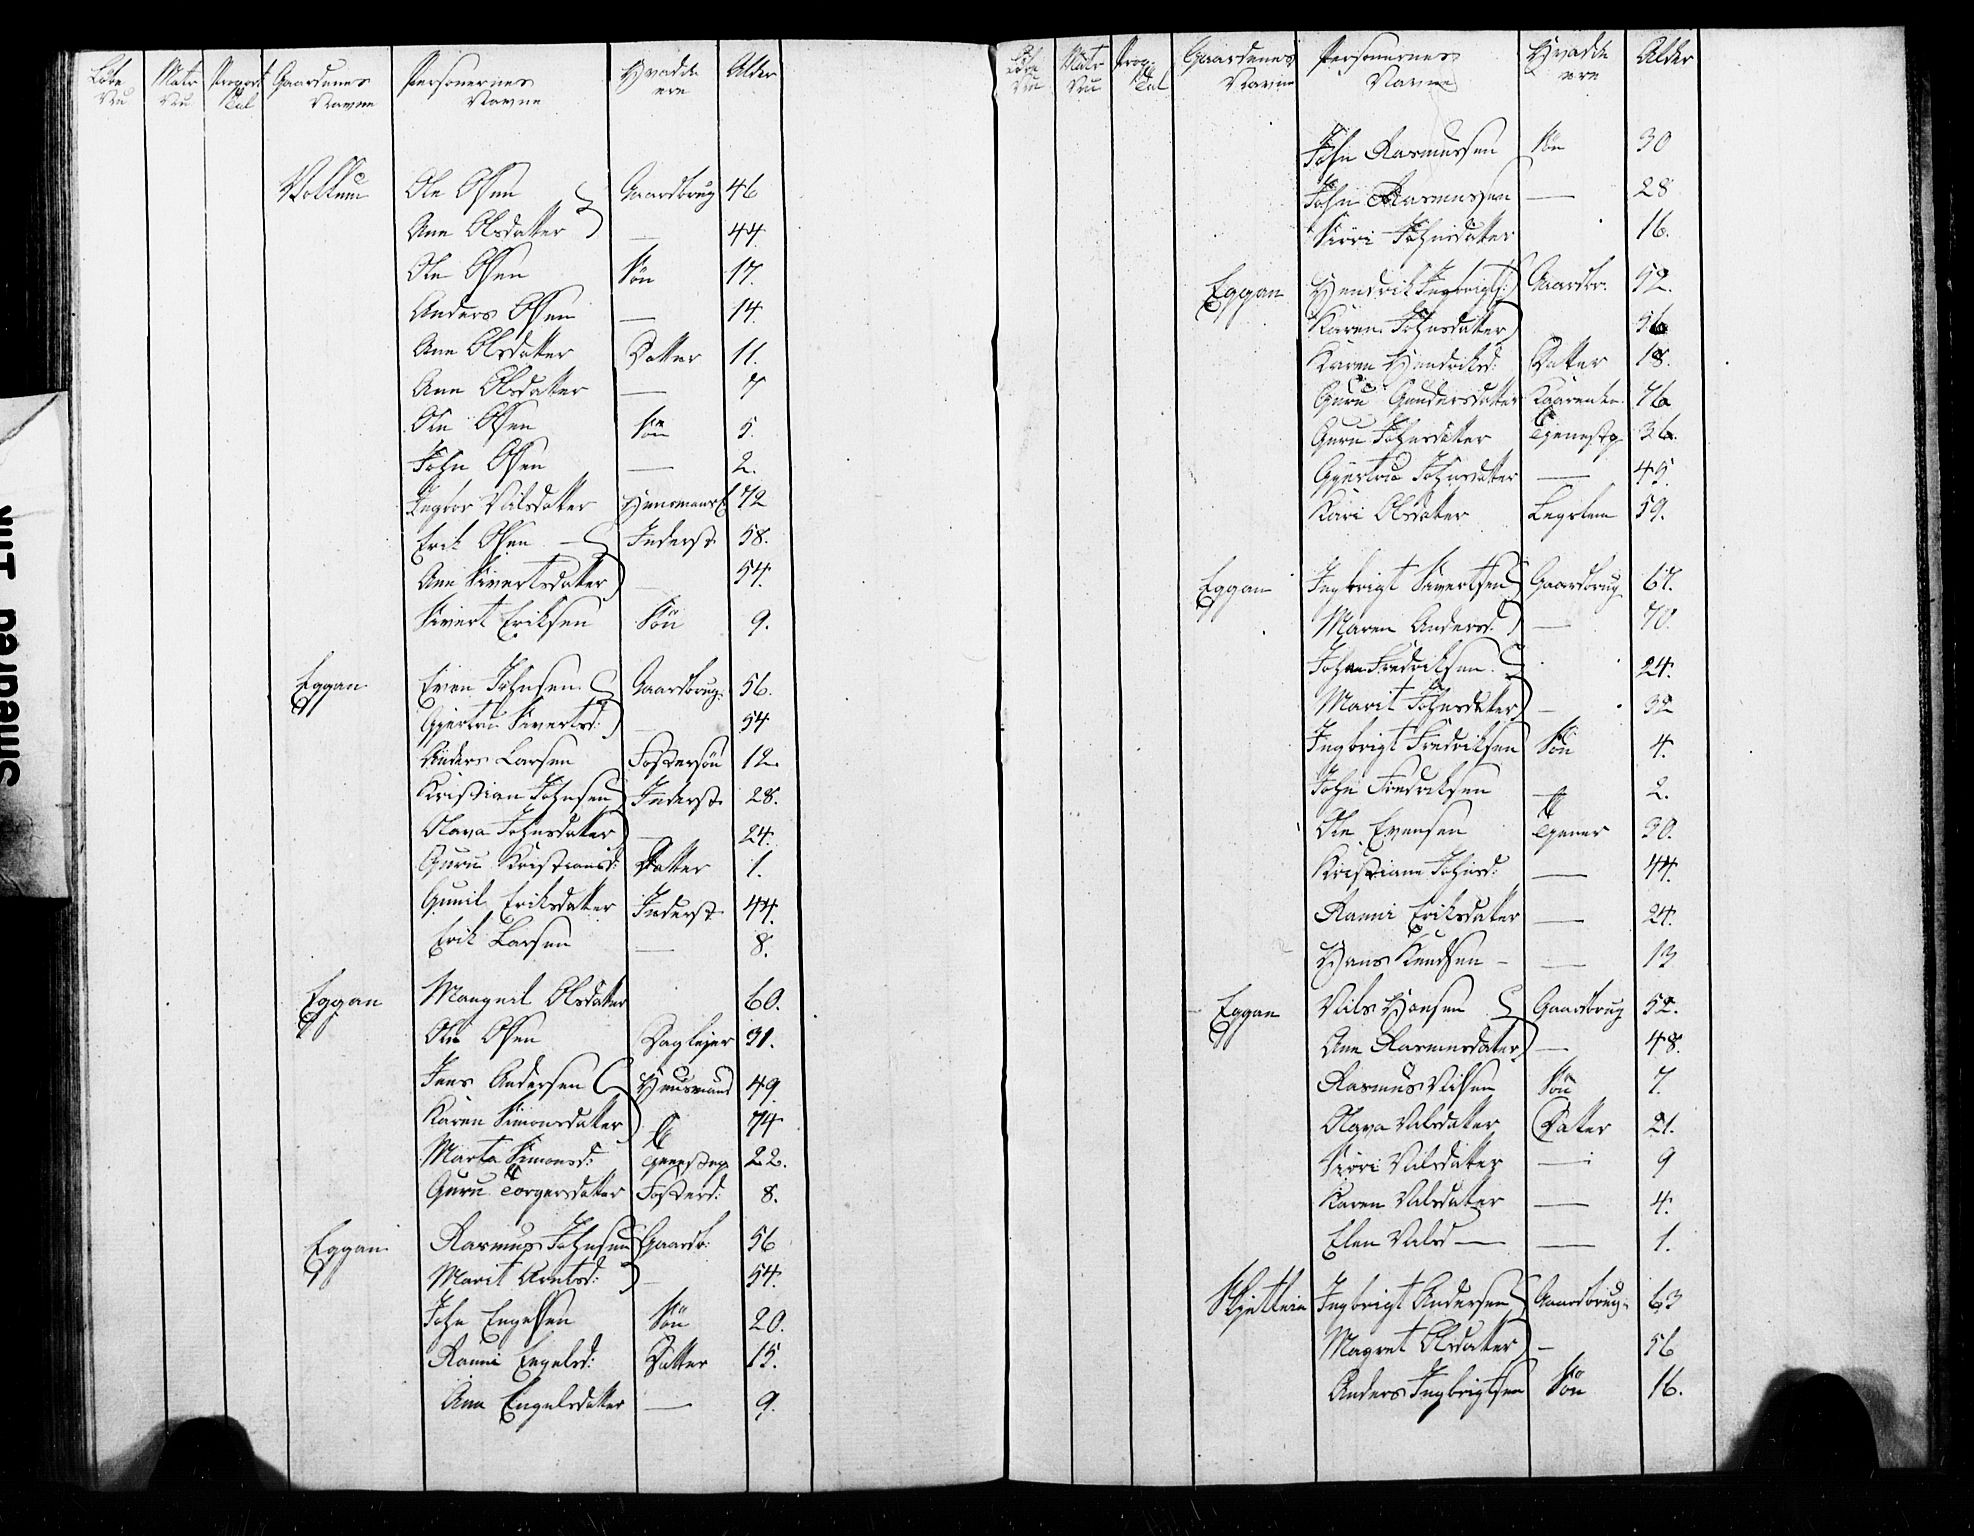 Løbe Nu | Matr Nu | Proport Tal | Gaardenes Navne | Personernes Navne | Hvad de ere | Alder
Volkum | Ole Olsen | Gaardbrug | 46
Ane Olsdatter | — | 44.
Ole Olsen | Søn | 17.
Anders Olsen | — | 14.
Ane Olsdatter | Datter | 11.
Ane Olsdatter | — | 7
Ole Olsen | Søn | 5.
John Olsen | — | 2.
Ingbor Nilsdatter | 72
Erik Olsen | Inderst | 58.
Ane Sivertsdatter | — | 54.
Sivert Eriksen | Søn | 9.
Eggan | Even Johnsen | Gaardbrug. | 56.
Gjertru Sivertsd: | — | 54
Anders Larsen | Fostersøn | 12.
Kristian Johnsen | Inderst | 28.
Olava Johnsdatter | — | 24.
Guru Kristiansd: | Datter | 1.
Gunil Eriksdatter | Inderst | 44.
Erik Larsen | — | 8.
Eggan | Magnil Olsdatter | 60.
Ole Olsen | Daglejer | 31.
Jens Andersen | Huusmand | 49.
Karen Simonsdatter | 74
Marta Simonsd: | Tjenestep | 22.
Guru Torgersdatter | Fosterd: | 8.
Eggan | Rasmus Johnsen | Gaardb: | 56
Marit Arntsd: | — | 54.
John Engelsen | Søn | 20.
Ranni Engelsd: | Datter | 15.
Ane Engelsdatter | — | 9.
Løbe Nu | Matr Nu | Prop. Tal | Gaardenes Navne | Personernes Navne | Hvad de ere | Alder
John Rasmussen | Søn | 30
John Rasmussen | — | 28
Siøri Johnsdatter | 16.
Eggan | Hendrik Ingbrigts: | Gaardbr. | 52.
Karen Johnsdatter | 56
Karen Hendriksd: | Datter | 18.
Guru Gundersdatter | Kaarenko. | 76
Guru Johnsdatter | Tjenestp | 36.
Gjertru Johnsdatter | — | 45.
Kari Olsdatter | Legslem | 59.
Eggan | Ingbrigt Sivertsen | Gaardbrug | 67.
Maren Andersd. | — | 70.
Johan Fredriksen. | 24.
Marit Johnsdatter | — | 32
Ingbrigt Fredriksen | Søn | 4.
John Fredriksen | — | 2.
Ole Evensen | Tjener | 30.
Kristiane Johnsd: | — | 44.
Ranni Eriksdatter | — | 24.
Hans Knudsen | — | 13
Eggan | Nils Hansen | Gaardbrug | 52.
Ane Rasmusdatter | — | 48.
Rasmus Nilsen | Søn | 7.
Olava Nilsdatter | Datter | 21.
Siøri Nilsdatter | — | 9
Karen Nilsdatter | — | 4.
Elen Nilsd — | — | 1.
Skjetlein | Ingbrigt Andersen | Gaardbrug. | 63
Magret Olsdatter | — | 56
Anders Ingbrigtsen | Søn | 16.